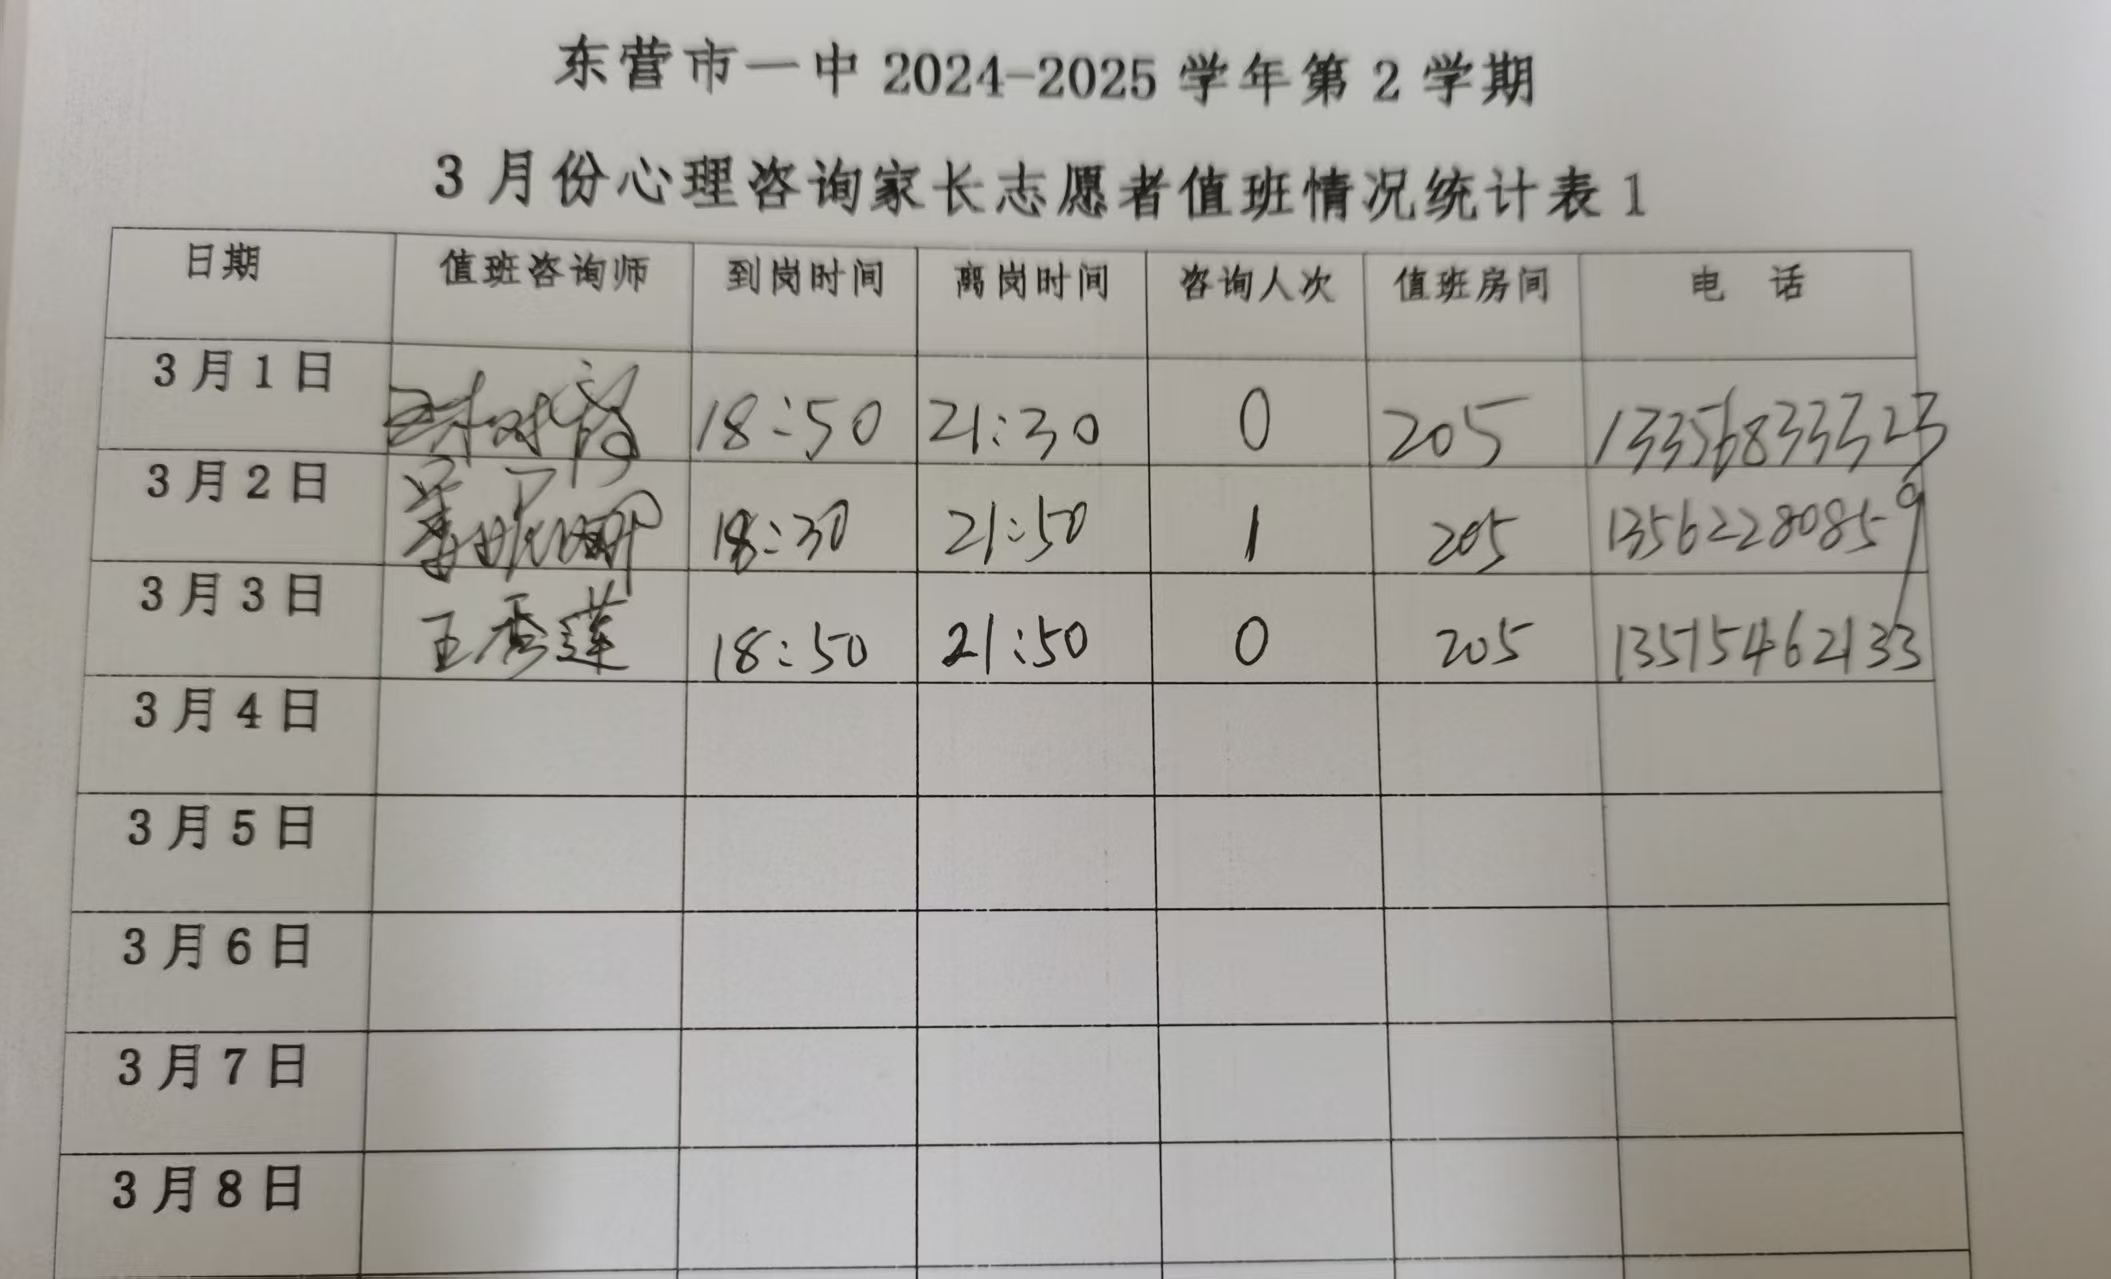 东营市一中 2024-2025 学年第 2 学期
3 月份心理咨询家长志愿者值班情况统计表 1
日期 值班咨询师 到岗时间 离岗时间 咨询人次 值班房间 电 话
3 月 1 日 18:50 21:30 0 205 13356833323
3 月 2 日 18:30 21:50 1 205 13562280859
3 月 3 日 王秀莲 18:50 21:50 0 205 13515462133
3 月 4 日
3 月 5 日
3 月 6 日
3 月 7 日
3 月 8 日